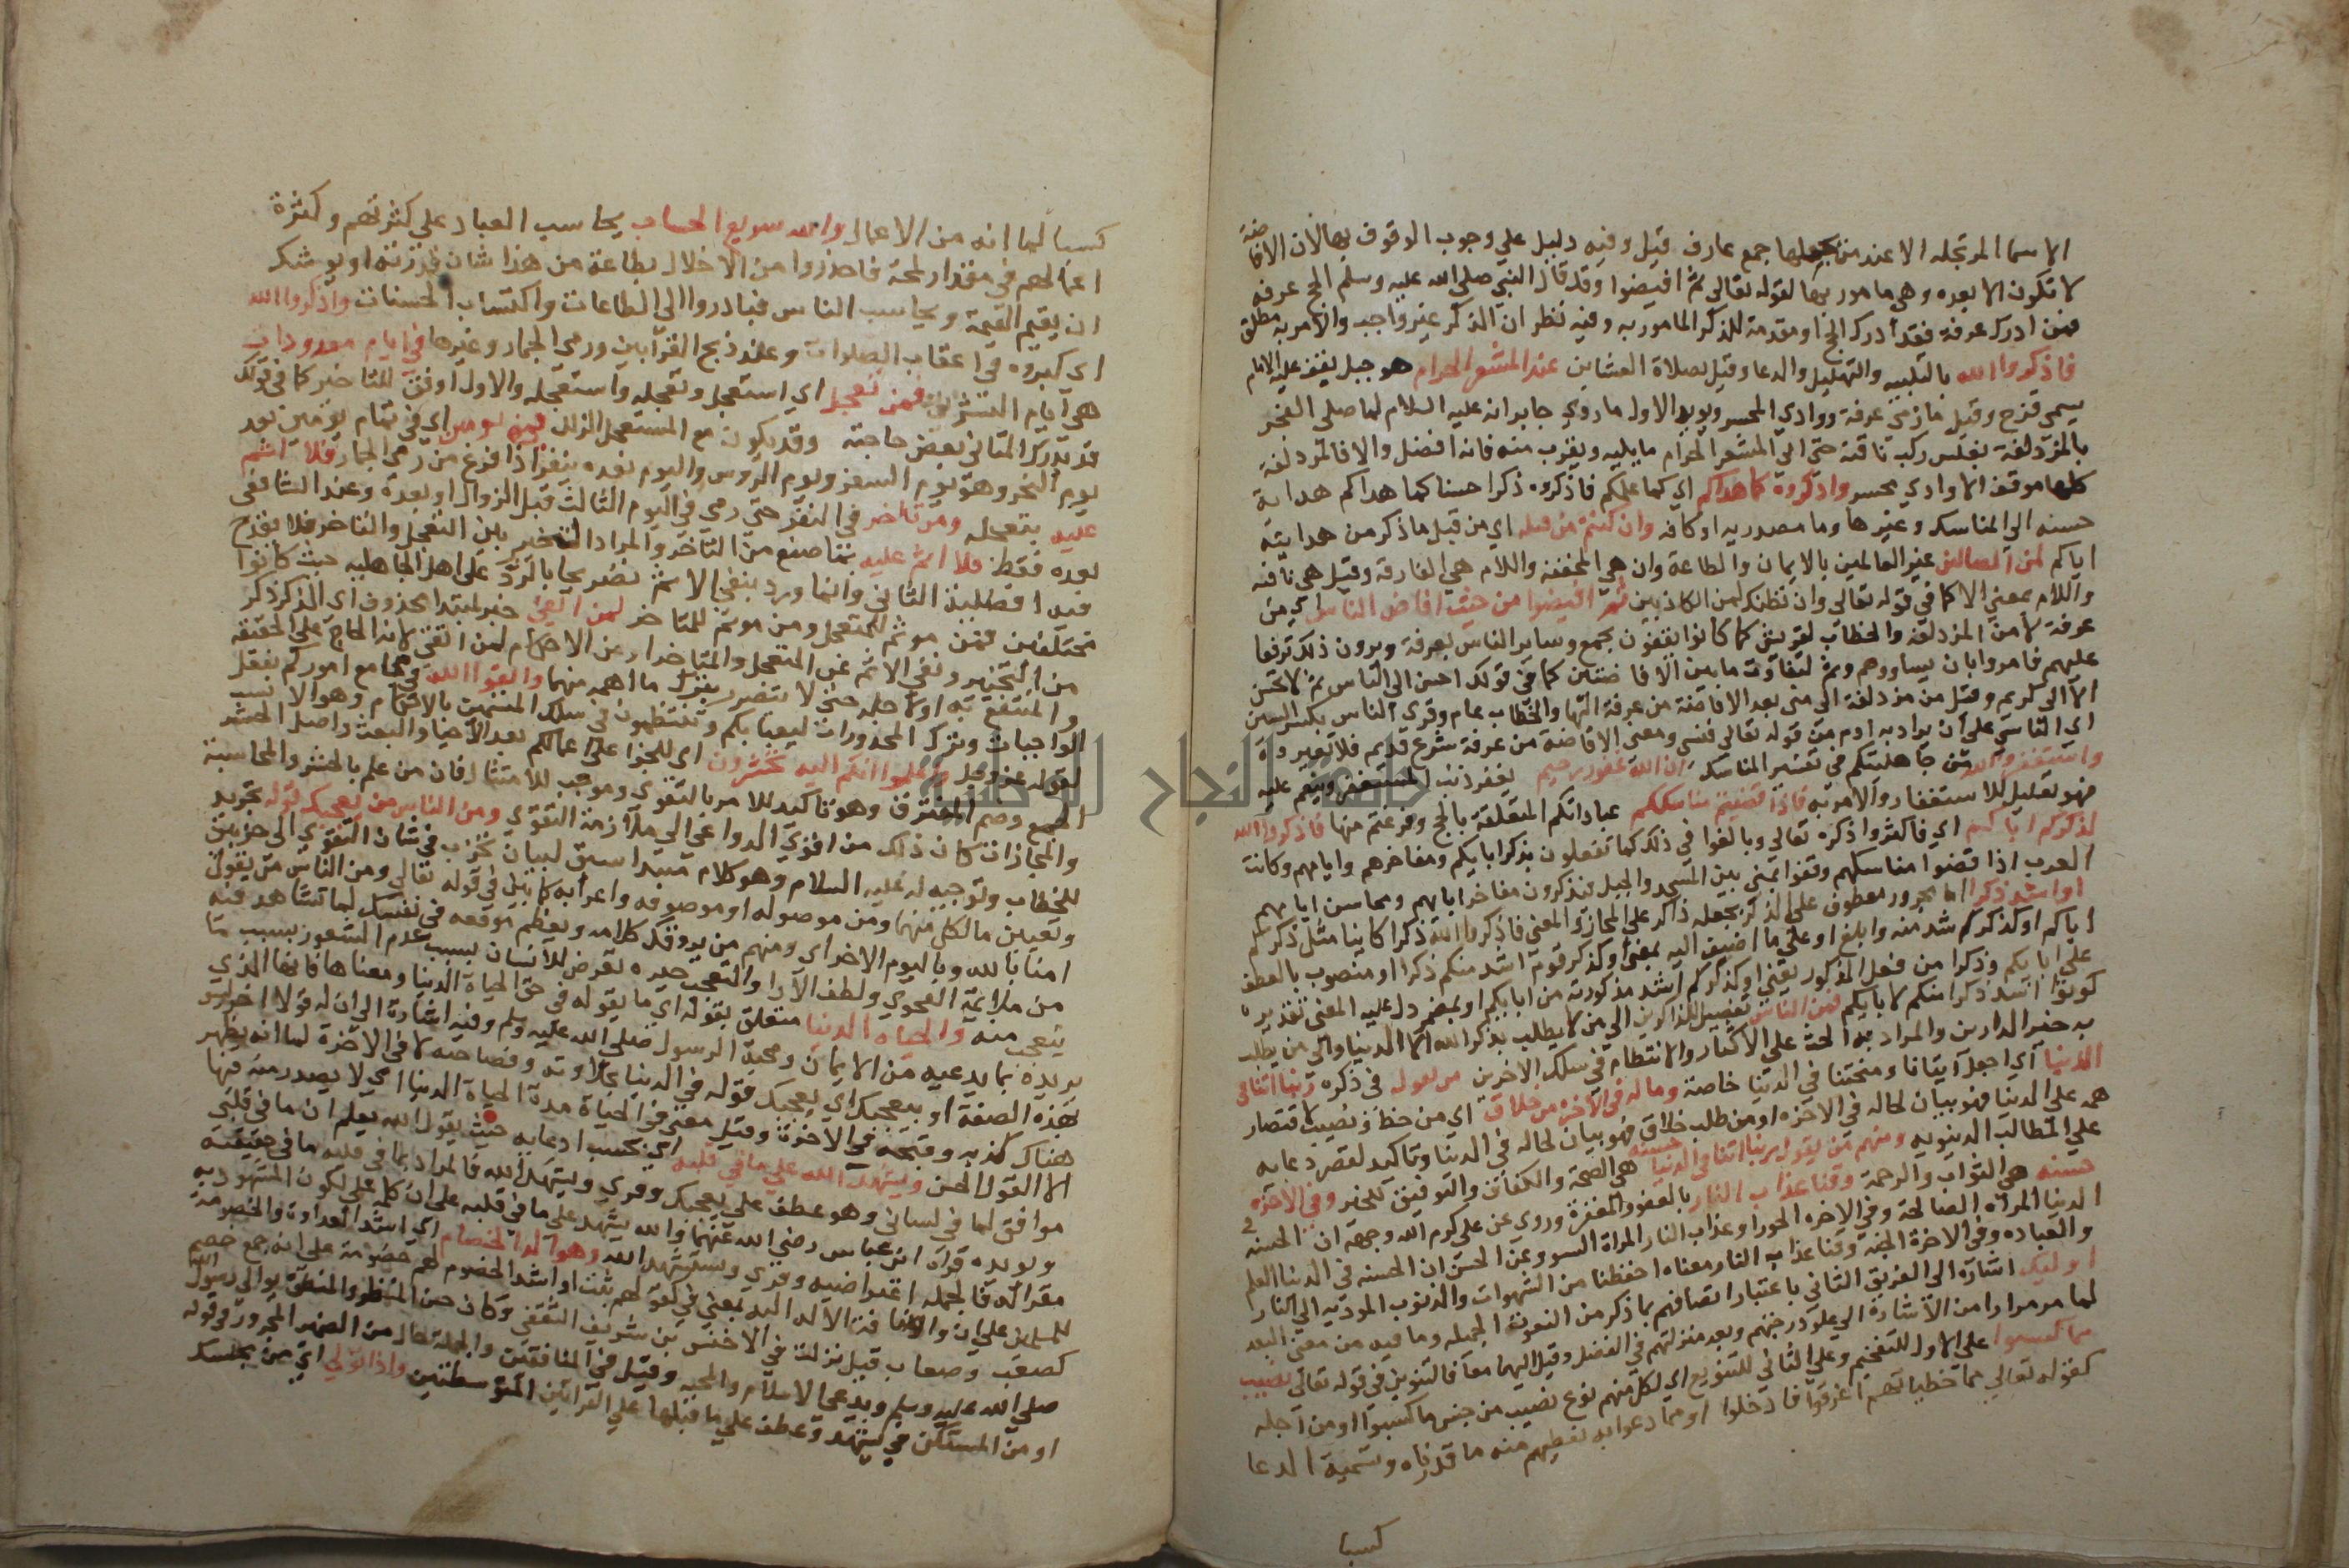 الاسما المرتجله الا عند من يجعلها جمع عارف قيل وفيه دليل علي وجوب الوقوف بها لان الافاضة
لا تكون الا بعده وهي مامور بها لقوله تعالي ثم افيضوا وقد قال النبي صلي الله عليه وسلم الحج عرفه
فمن ادرك عرفة فقد ادرك الحج او مقدمة للذكر المامور به وفيه نظر ان الذكر غير واجب والامر به مطلق
فاذكروا الله بالتلبيه والتهليل والدعا وقيل بصلاة العشاين عند المشعر الحرام هو جبل يقف عليه الامام
يسمي قزح وقيل مازمي عرفة ووادي المحسر ويويد الاول ما روي جابر انه عليه السلام لما صلي الفجر
بالمزدلفة بغلس ركب ناقته حتي اتي المشعر الحرام مايليه ويقرب منه فانه افضل والا فالمزدلفة
كلها موقف الا وادي محسر واذكروه كما هداكم اي كما علمكم فاذكروه ذكرا حسنا كما هداكم هداية
حسنه الي المناسك وغيرها وما مصدريه او كافه وان كنتم من قبله اي من قبل ما ذكر من هدايته
اياكم لمن الضالين غير العالمين بالايمان والطاعة وان هي المخففه واللام هي الفارقة وقيل هي نافيه
واللام بمعني الا كما في قوله تعالي وان نظنك لمن الكاذبين ثم افيضوا من حيث افاض الناس اي من
عرفة لا من المزدلفة والخطاب لقريش كما كانوا يقفون بجمع وساير الناس بعرفة ويرون ذلك ترفعا
عليهم فامروا بان يساووهم وثم لتفاوت ما بين الافاضتين كما في قولك احسن الي الناس ثم لا تحسن
الا الي كريم وقيل من مزدلفة الي مني بعد الافاضة من عرفة اليها والخطاب عام وقري الناس بكسر السين
اي الناسي علي ان يراد به ادم من قوله تعالي فنسي ومعني الافاضة من عرفة شرع قديم فلا تغيروه
واستغفروا الله من جاهليتكم في تغيير المناسك ان الله غفور رحيم يغفر ذنب المستغفر وينعم عليه
فهو تعليل للاستغفار والامر به فاذا قضيتم مناسككم عباداتكم المتعلقة بالحج وفرغتم منها فاذكروا الله
كذكركم اباكم اي فاكثروا ذكره تعالي وبالغوا في ذلك كما تفعلون بذكر ابايكم ومفاخرهم وايامهم وكانت
العرب اذا قضوا مناسكهم وقفوا بمني بين المسجد والجبل فيذكرون مفاخر ابايهم ومحاسن ايامهم
او اشد ذكرا اما مجرور معطوف علي الذكر بجعله ذاكر علي المجاز والمعني فاذكروا الله ذكرا كاينا مثل ذكركم
اباكم او كذكر اشد منه وابلغ او علي ما اضيف اليه بمعني او كذكر قوم اشد منكم ذكرا او منصوب بالعطف
علي ابايكم وذكرا من فعل المذكور يعني او كذكركم اشد مذكورية من ابايكم او بمضمر دل عليه المعني تقديره
كونوا اشد ذكرا منكم لابايكم فمن الناس تفصيل للذاكرين الي من لا يطلب بذكر الله الا الدنيا والي من يطلب
به خير الدارين والمراد به الحث علي الاكثار والانتظام في سلك الاخرين من يقول في ذكره ربنا اتنا في
الدنيا اي اجعل ايتانا ومنحتنا في الدنيا خاصة وما له في الاخره من خلاق اي من حظ ونصيب لاقتصار
همه علي الدنيا فهو بيان لحاله في الاخره او من طلب خلاق فهو بيان لحاله في الدنيا وتاكيد لقصر دعايه
علي المطالب الدنيويه ومنهم من يقول ربنا اتنا في الدنيا حسنه هي الصحة والكفاف والتوفيق للخير وفي الاخره
حسنه هي الثواب والرحمة وقنا عذاب النار بالعفو والمغفرة وروي عن علي كرم الله وجهه ان الحسنه في
الدنيا المراه الصالحة وفي الاخره الحورا وعذاب النار المراة السو وعن الحسن ان الحسنه في الدنيا العلم
والعباده وفي الاخرة الجنه وقنا عذاب النار معناه احفظنا من الشهوات والذنوب الموديه الي النار
اوليك اشارة الي الفريق الثاني باعتبار اتصافهم بما ذكر من النعوت الجميله وما فيه من معني البعد
لما مر مرارا من الاشارة الي علو درجتهم وبعد منزلتهم في الفضل وقيل اليهما معا فالتنوين في قوله تعالي نصيب
مما كسبوا علي الاول للتفخيم وعلي الثاني للتنويع اي لكل منهم نوع نصيب من جنس ما كسبوا او من اجله
كقوله تعالي مما خطياتهم اغرقوا فادخلوا او مما دعوا به نعطيهم منه ما قدرناه وتسمية الدعا
كسبا
كسبا لما انه من الاعمال والله سريع الحساب يحاسب العباد علي كثرتهم وكثرة
اعمالهم في مقدار لمحة فاحذروا من الاخلال بطاعة من هذا شان قدرته او يوشك
ان يقيم القيمة ويحاسب الناس فبادروا الي الطاعات واكتساب الحسنات واذكروا الله
اي كبروه في اعقاب الصلوات وعند ذبح القرابين ورمي الجمار وغيرها في ايام معدودات
هي ايام التشريق فمن تعجل اي استعجل وتعجله واستعجله والاول اوفق للتاخير كما في قولك
قد يدرك المتاني بعض حاجته وقد يكون مع المستعجل الزلل في يومين اي في تمام يومين بعد
يوم النحر وهو يوم السفر ويوم الروس واليوم بعده ينفر اذا فرغ من رمي الجمار فلا اثم
عليه بتعجله ومن تاخر في النفر حتي رمي في اليوم الثالث قبل الزوال او بعدة وعند الشافعي
بعده فقط فلا اثم عليه بما صنع من التاخر والمراد التخيير بين التعجل والتاخر فلا يقدح
فيه افضلية الثاني وانما ورد بنفي الاثم تصريحا بالرد علي اهل الجاهليه حيث كانوا
مختلفين فمن موثم للمتعجل ومن موثم للمتاخر لمن اتقي خبر لمبتدا محذوف اي الذكر ذكر
من التخيير ونفي الاثم عن المتعجل والمتاخر او من الاحكام لمن اتقي لانه الحاج علي الحقيقه
والمنتفع به او لاجله حتي لا يتضرر بترك ما اهمه منهما واتقوا الله في مجامع اموركم بفعل
الواجبات وترك المحذورات ليعبا بكم وتنتظموا في سلك المغتنمين بالاحكام وهو الانسب
لقوله عز وجل واعلموا انكم اليه تحشرون اي للجزا علي اعمالكم بعد الاحيا والبعث واصل الحشر
الجمع وضم المتفرق وهو تاكيد للامر بالتقوي وموجب للامتثال فان من علم بالحشر والمحاسبة
والمجازات كان ذلك من اقوي الدواعي الي ملازمة التقوي ومن الناس من يعجبك قوله تجريد
للخطاب وتوجيه له عليه السلام وهو كلام مبتدا سيق لبيان تحزب في شان التقوي الي حزبين
وتعيين مال كل منهما ومن موصوله او موصوفه واعرابه كما بين في قوله تعالي ومن الناس من يقول
امنا بالله وباليوم الاخر اي ومنهم من يروقك كلامه ويعظم موقعه في نفسك لما تشاهد فيه
من ملايمة الفحوي ولطف الادا والتعجب حيره تعرض للانسان بسبب عدم الشعور بسبب ما
يتعجب منه في الحياه الدنيا متعلق بقوله اي ما يقوله في حق الحياة الدنيا ومعناها فانها الذي
يريده بما يدعيه من الايمان ومحبة الرسول صلي الله عليه وسلم وفيه اشارة الي ان له قولا اخر ليس
بهذه الصفة او بيعجبك اي يعجبك قوله في الدنيا بحلاوته وفصاحته لا في الاخرة لما انه يظهر
هناك كذبه وقبحه في الاخرة وقيل معني في الحياة مدة الحياة الدنيا اي لا يصدر منه فيها
الا القول الحسن ويشهد الله علي ما في قلبه اي بحسب ادعايه حيث يقول الله يعلم ان ما في قلبي
موافق لما في لساني وهو عطف علي يعجبك وقري ويشهد الله فالمراد بما في قلبه ما في حقيقته
ويويده قراة ابن عباس رضي الله عنهما والله يشهد علي ما في قلبه علي ان كلمة علي لكون المشهود به
مضرا له فالجمله اعتراضيه وقري ويستشهد الله وهو الد الخصام اي اشد العداوة والخصومة
للمسلمين علي ان والاضافة الالد اليه بمعني في كقولهم ثبت او اشد الخصوم لهم خصومة علي انه جمع خصم
كصعب وصعاب قيل نزلت في الاخنس بن شريف الثقفي وكان حسن المنظر والمنطق يوالي رسول الله
صلي الله عليه وسلم ويدعي الاسلام والمحبه وقيل في المنافقين والجملة حال من الضمير المجرور في قوله
او من المستكن في يشهد وعطف علي ما قبلها علي القراتين المتوسطتين واذا تولي اي من مجلسك
جامعة النجاح الوطنية